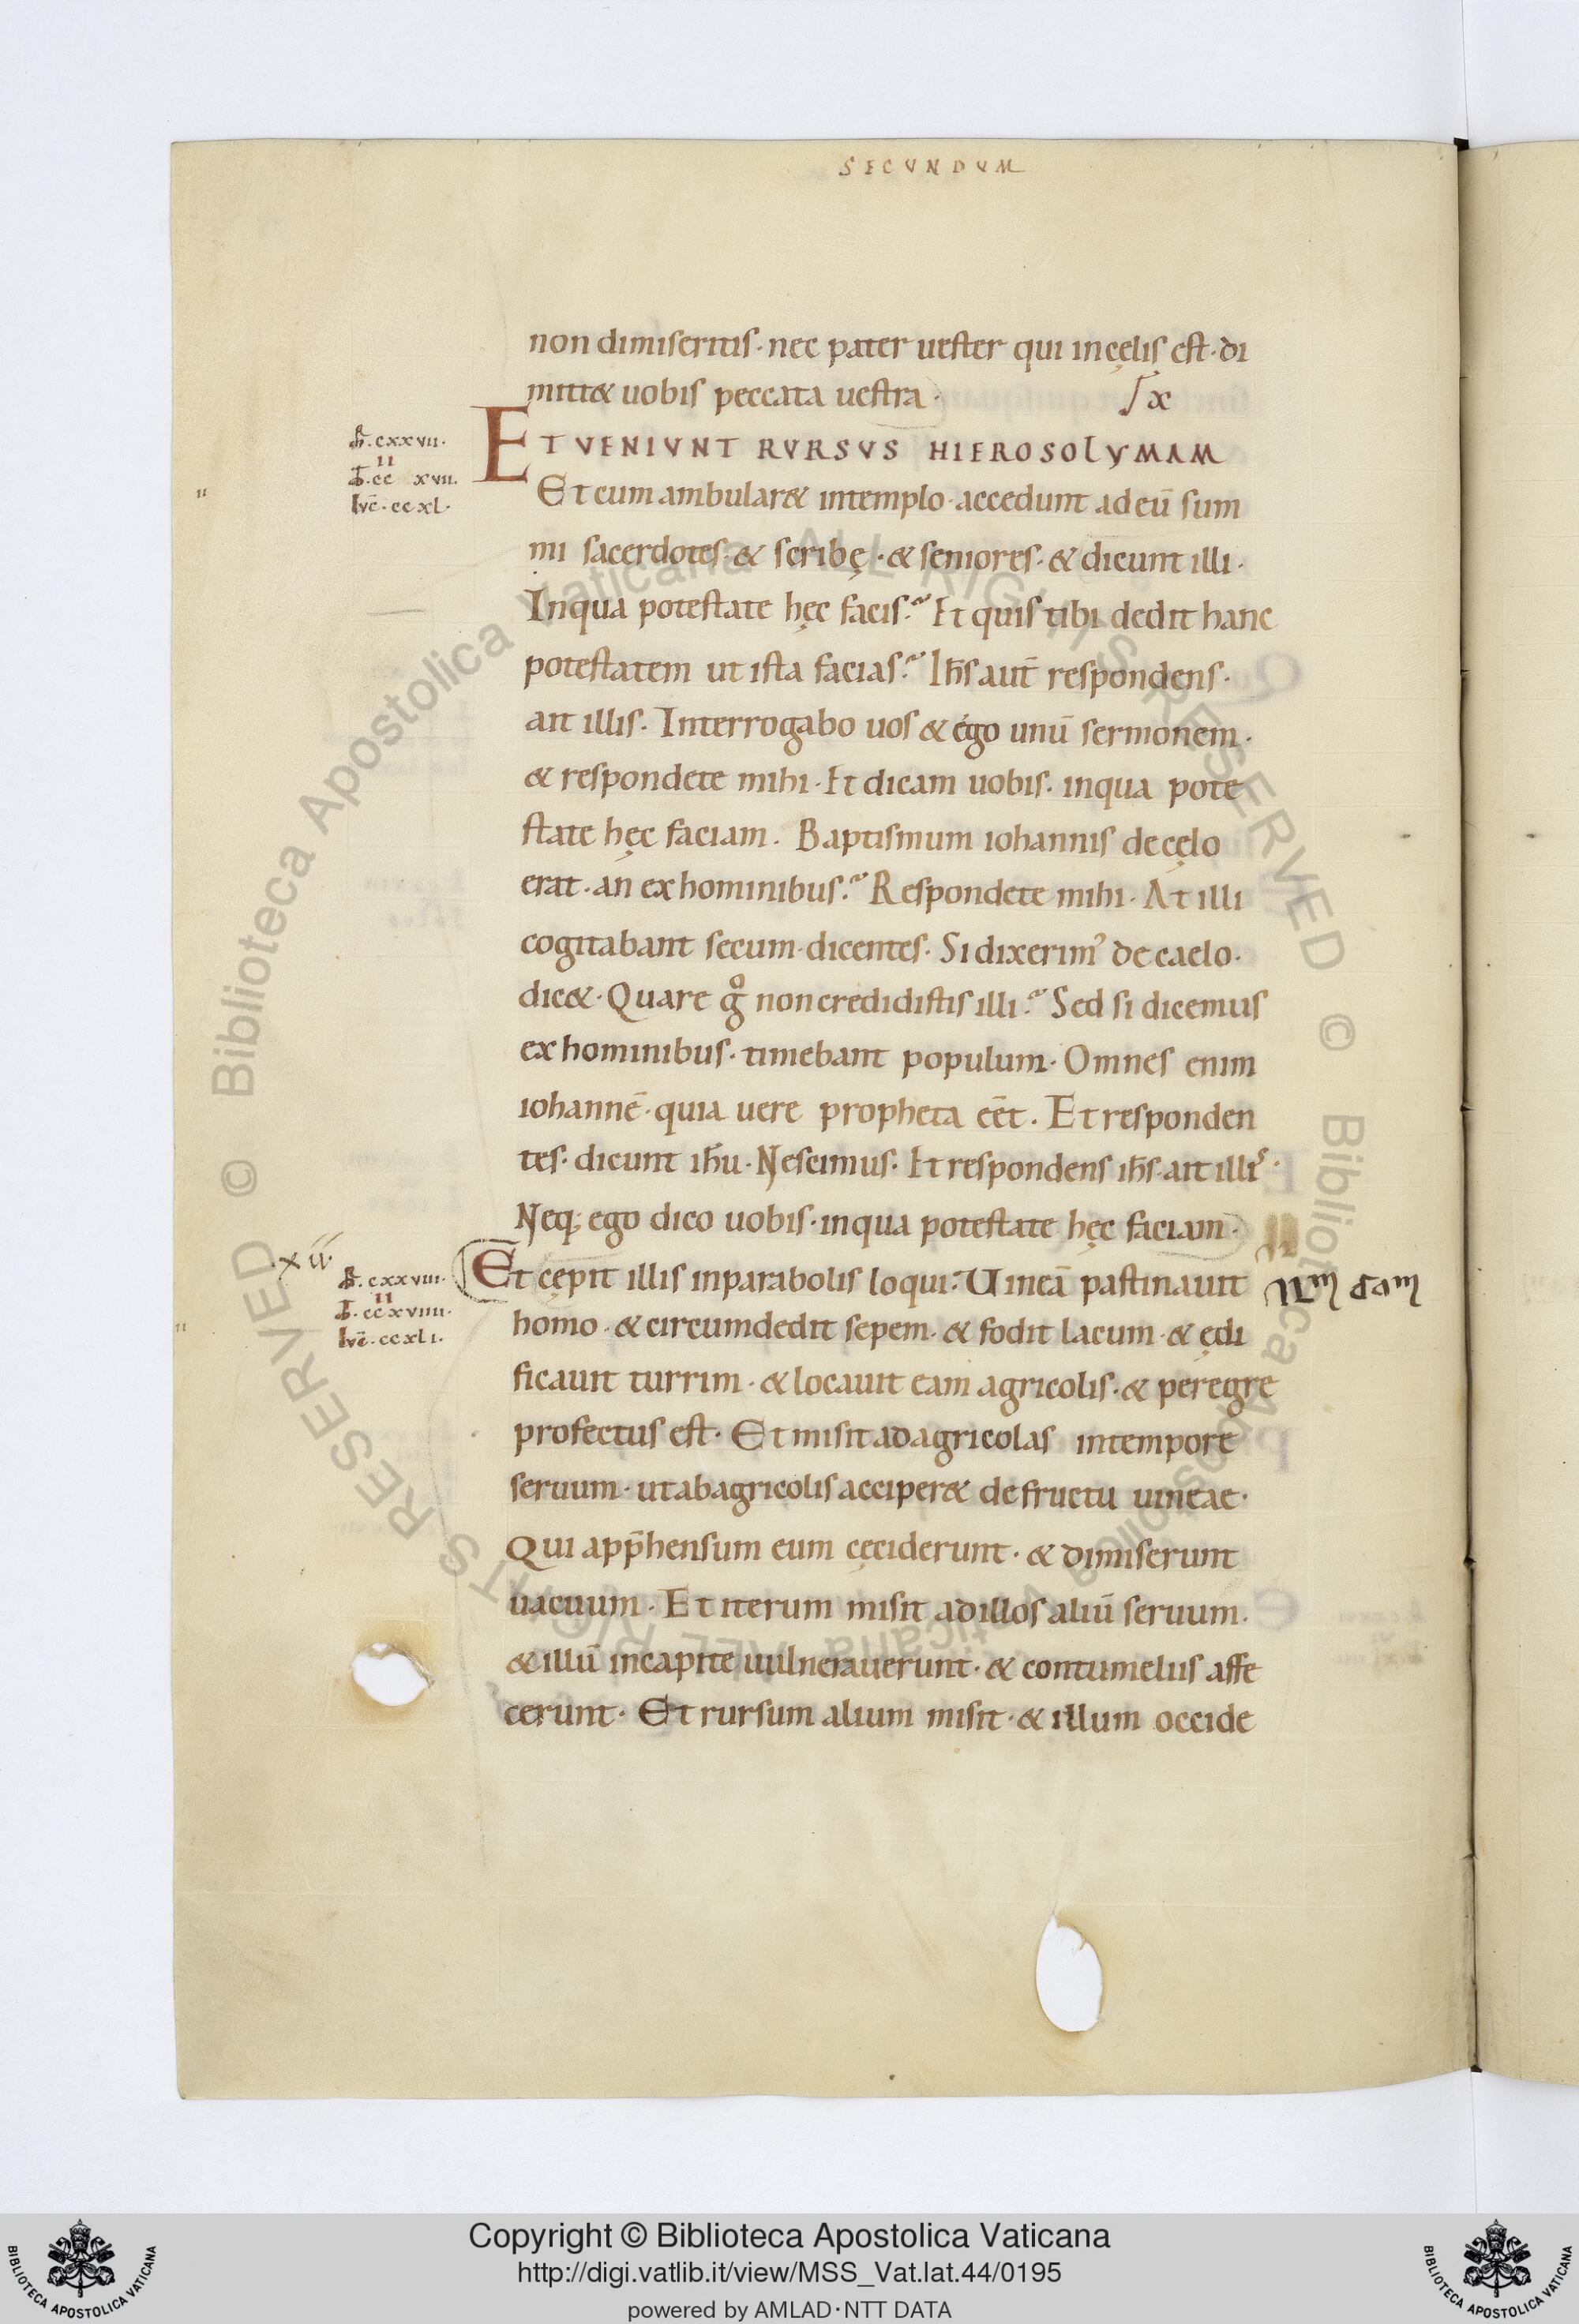 SECVNDVM
non dimiseritis· nec pater uester qui incęlis est· di
mitt& uobis peccata uestra·
x
ET VENIVNT RVRSVS HIEROSOLYMAM
cxxvii·
ii
cc xvii·
lvc̄· ccxl·
Et cum ambular& intemplo· accedunt ad eū sum
mi sacerdotes· & scribę· & seniores· & dicunt illi·
Inqua potestate hęc facis? Et quis tibi dedit hanc
potestatem ut ista facias? Ih̄s aut̄ respondens·
ait illis· Interrogabo uos & égo unū sermonem·
& respondete mihi· Et dicam uobis· inqua pote
state hęc faciam· Baptismum iohannis decęlo
erat· an ex hominibus? Respondete mihi· At illi
cogitabant secum· dicentes· Si dixerim' de caelo·
dic&· Quare gͦ non credidistis illi? Sed si dicemus
ex hominibus· timebant populum· Omnes enim
iohannē· quia uere propheta eēt· Et responden
tes· dicunt ih̄u· Nescimus· Et respondens ih̄s· ait illis·
Neq; ego dico uobis· inqua potestate hęc faciam·
xii·
cxxviii·
ii
ccxviiii·
lvc̄· ccxli·
Et cępit illis inparabolis loqui: Uineā pastinauit
homo· & circumdedit sepem· & fodit lacum· & ędi
ficauit turrim· & locauit eam agricolis· & peregre
profectus est· Et misit ad agricolas intempore
seruum· ut ab agricolis acciper& de fructu uineae·
Qui app̄hensum eum cęciderunt· & dimiserunt
uacuum· Et iterum misit ad illos aliū seruum·
& illū incapite uulnerauerunt· & contumeliis affe
cerunt· Et rursum alium misit· & illum occide
Biblioteca Apostolica Vaticana ALL RIGHTS RESERVED ©
Biblioteca Apostolica Vaticana ALL RIGHTS RESERVED ©
Copyright © Biblioteca Apostolica Vaticana
http://digi.vatlib.it/view/MSS_Vat.lat.44/0195
powered by AMLAD·NTT DATA
BIBLIOTECA APOSTOLICA VATICANA
BIBLIOTECA APOSTOLICA VATICANA